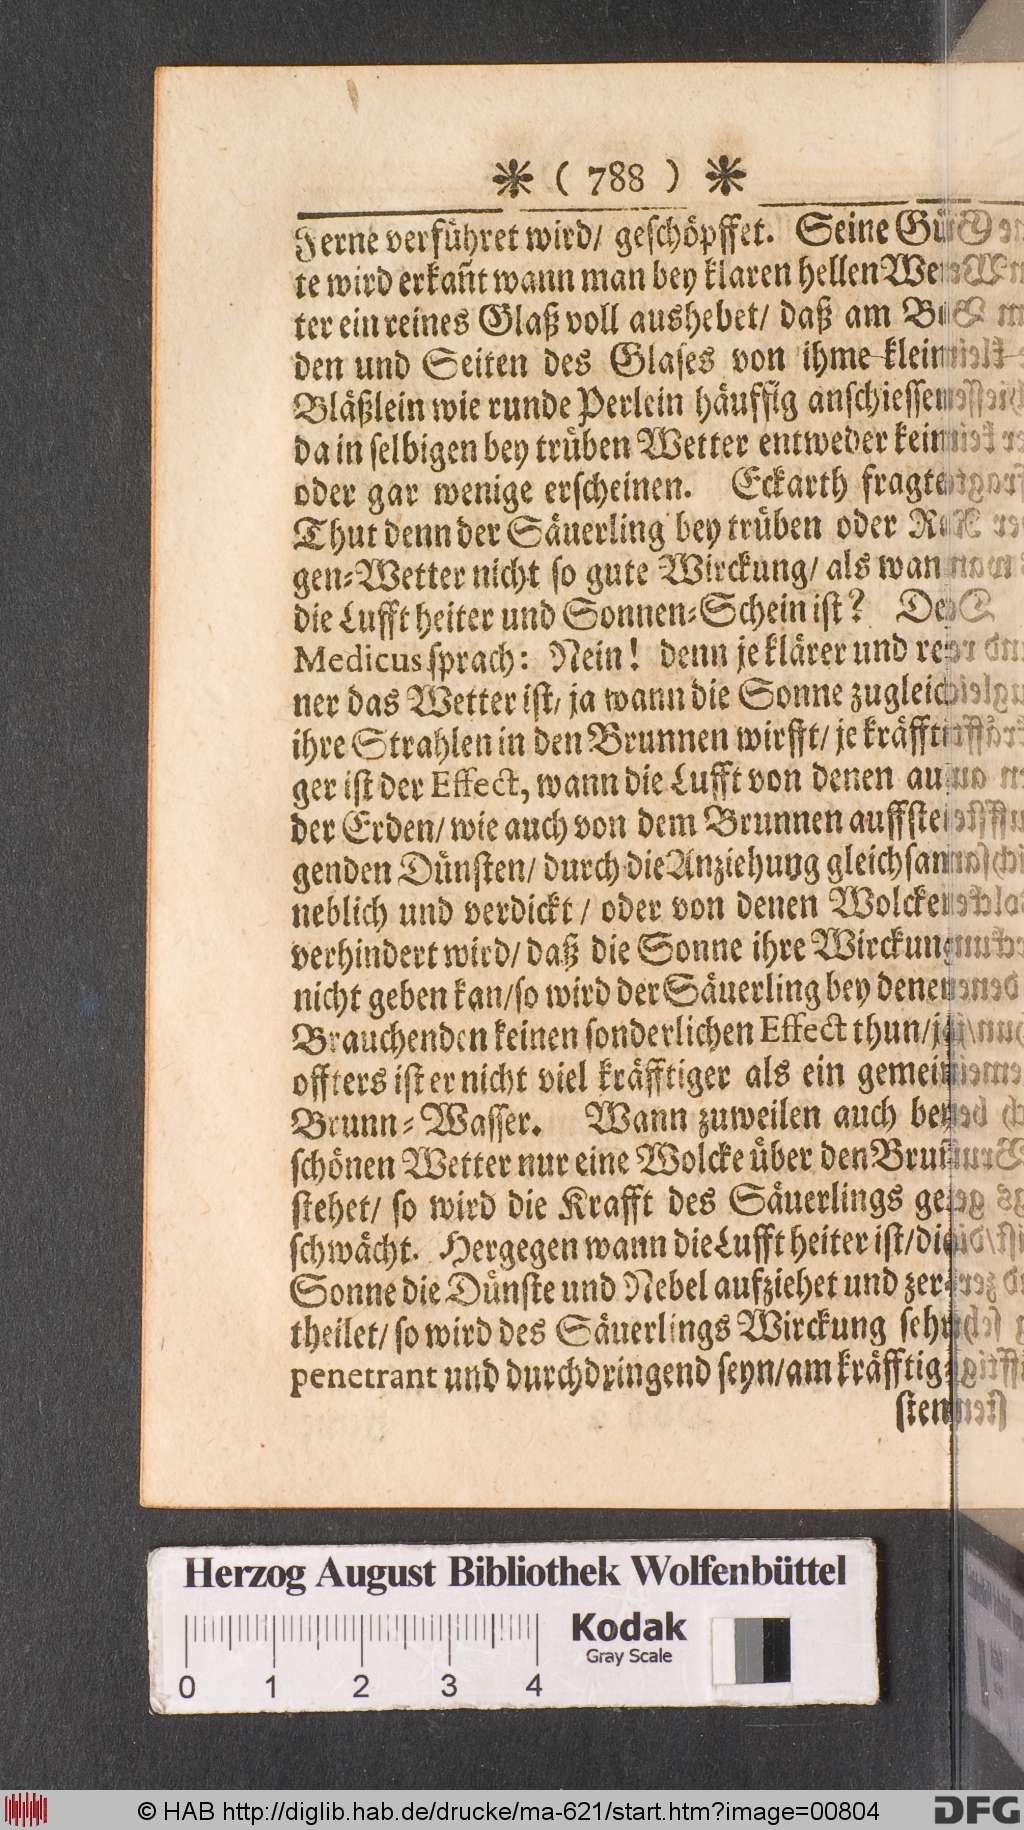 * ( 788 ) *
Ferne verführet wird/ geschöpffet. Seine Gü-
te wird erkañt wann man bey klaren hellen Wet-
ter ein reines Glaß voll aushebet/ daß am Bo-
den und Seiten des Glases von ihme kleine
Bläßlein wie runde Perlein häuffig anschiessen
da in selbigen bey trüben Wetter entweder keine
oder gar wenige erscheinen. Eckarth fragte:
Thut denn der Säuerling bey trüben oder Re-
gen-Wetter nicht so gute Wirckung/ als wan
die Lufft heiter und Sonnen-Schein ist? Der
Medicus sprach: Nein! denn je klärer und rei-
ner das Wetter ist/ ja wann die Sonne zugleich
ihre Strahlen in den Brunnen wirfft/ je kräffti-
ger ist der Effect, wann die Lufft von denen aus
der Erden/ wie auch von dem Brunnen auffstei-
genden Dünsten/ durch die Anziehung gleichsam
neblich und verdickt / oder von denen Wolcken
verhindert wird/ daß die Sonne ihre Wirckung
nicht geben kan/ so wird der Säuerling bey denen
Brauchenden keinen sonderlichen Effect thun/ ja
offters ist er nicht viel kräfftiger als ein gemein
Brunn-Wasser. Wann zuweilen auch bey
schönen Wetter nur eine Wolcke über den Brunn
stehet/ so wird die Krafft des Säuerlings ge-
schwächt. Hergegen wann die Lufft heiter ist/ die
Sonne die Dünste und Nebel aufziehet und zer-
theilet/ so wird des Säuerlings Wirckung sehr
penetrant und durchdringend seyn/ am kräfftig-
sten
Herzog August Bibliothek Wolfenbüttel
0 1 2 3 4
Kodak
Gray Scale
© HAB http://diglib.hab.de/drucke/ma-621/start.htm?image=00804
DFG